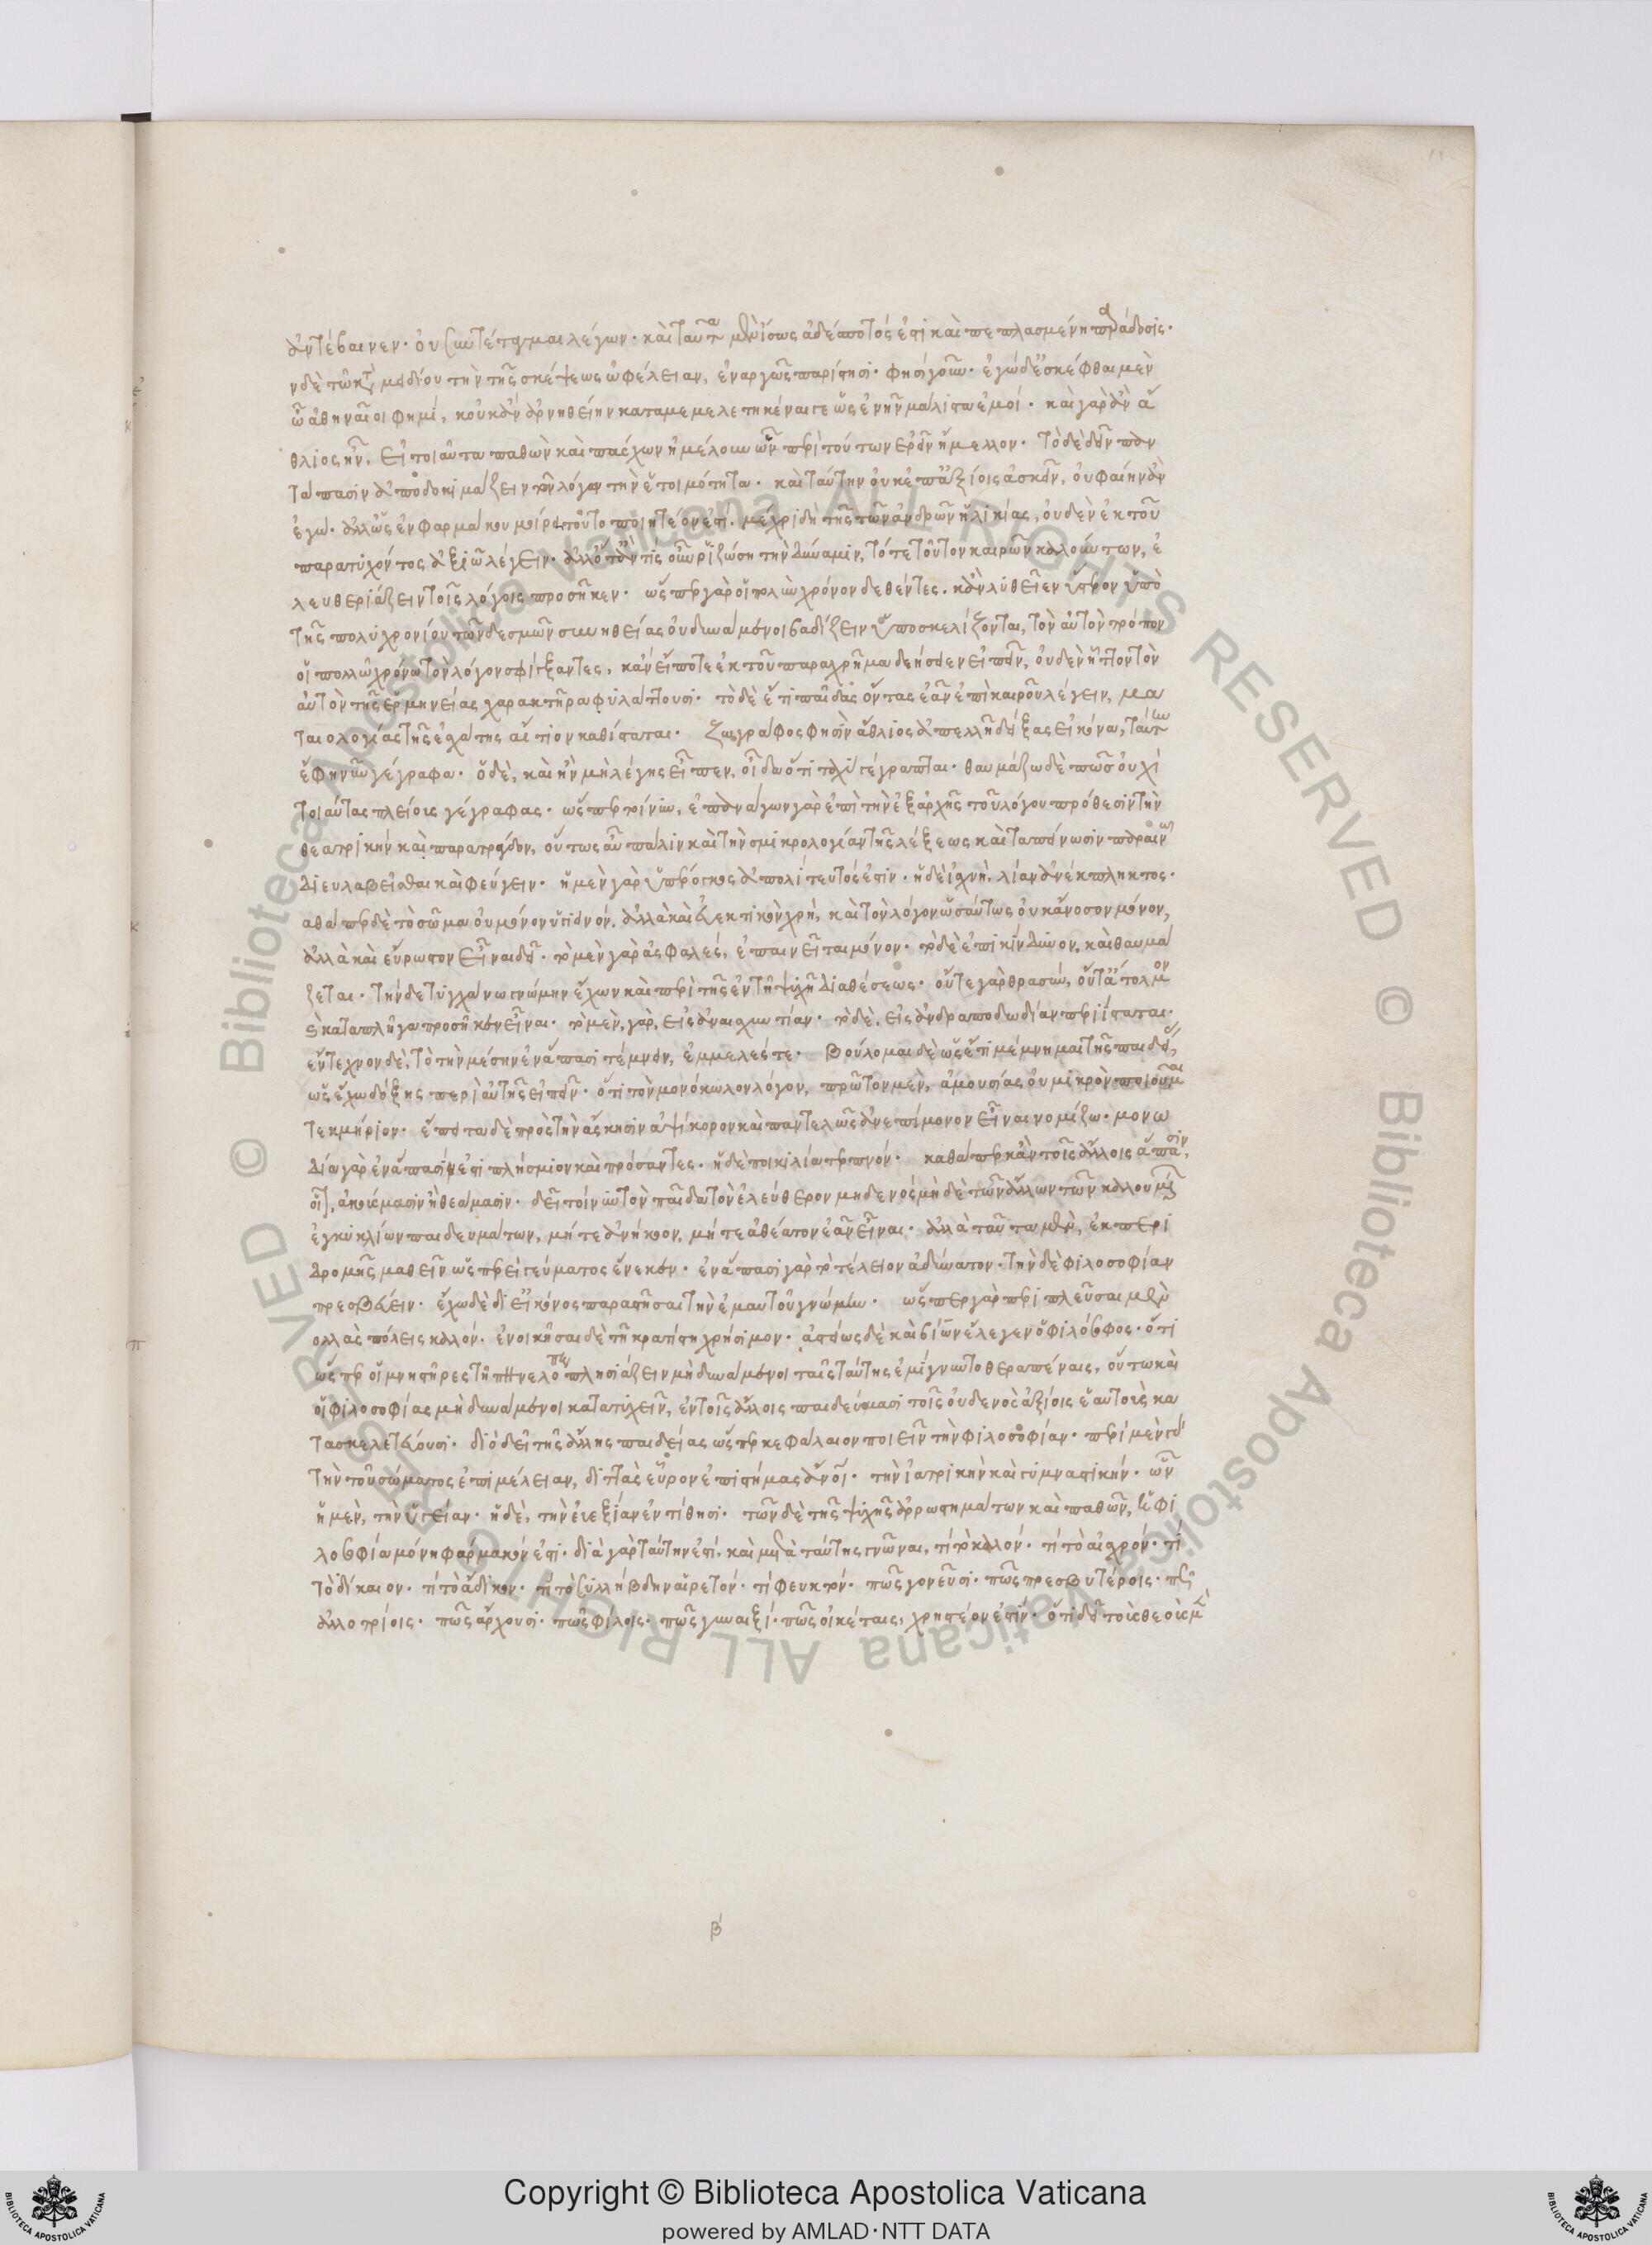 ἀντέβαινεν· οὐ συντέταγμαι λέγων· καὶ ταῦτα μὲν ἴσως ἀδέσποτός ἐστι καὶ πεπλασμένη παράδοσις·
ἐν δὲ τῶ κατὰ μειδίου τὴν τῆς σκέψεως ὠφέλειαν, ἐναργῶς παρίστησι· φησὶ γοῦν· ἐγὼ δ' ἐσκέφθαι μὲν
ὦ ἀθηναῖοι φημί, κοὐκ ἂν ἀρνηθείην καταμεμελετηκέναι γε ὡς ἐνῆν μάλιστα ἐμοί· καὶ γὰρ ἂν ἄ
θλιος ἦν, εἰ τοιαῦτα παθὼν καὶ πάσχων ἠμέλουν ὧν περὶ τούτων ἐρεῖν ἤμελλον· τὸ δὲ δεῖν παν
τάπασιν ἀποδοκιμάζειν τῶν λόγων τὴν ἑτοιμότητα· καὶ ταύτην οὐκ ἐπ' ἀξίοις ἀσκεῖν, οὐ φαίην ἂν
ἐγώ· ἀλλ' ὡς ἐν φαρμάκου μοίρα τοῦτο ποιητέον ἐστι· μέχρι δὴ τῆς τῶν ἀνδρῶν ἡλικίας, οὐδὲν ἐκ τοῦ
παρατυχόντος ἀξιῶ λέγειν· ἀλλ' ὅταν τις οὖν ῥιζώση τὴν δύναμιν, τότε τοῦτον καιρῶν καλούντων, ἐ
λευθεριάζειν τοῖς λόγοις προσῆκεν· ὥσπερ γὰρ οἱ πολὺν χρόνον δεθέντες· κἂν λυθεῖεν ὕστερον ὑπὸ
τῆς πολυχρονίου τῶν δεσμῶν συνηθείας οὐ δυνάμενοι βαδίζειν ὑποσκελίζονται, τὸν αὐτὸν τρόπον
οἱ πολλῶ χρόνω τὸν λόγον σφίγξαντες, κἂν εἴποτε ἐκ τοῦ παραχρῆμα δεήσειεν εἰπεῖν, οὐδὲν ἧττον τὸν
αὐτὸν τῆς ἑρμηνείας χαρακτῆρα φυλάττουσι· τὸ δὲ ἔτι παῖδας ὄντας ἐᾶν ἐπὶ καιροῦ λέγειν, μα
ταιολογίας τῆς ἐσχάτης αἴτιον καθίσταται· ζωγράφος φησὶν ἄθλιος ἀπελλῆ δείξας εἰκόνα, ταύτην
ἔφη νῦν γέγραφα· ὁ δὲ, καὶ ἢν μὴ λέγης εἶπεν, οἶδα ὅτι ταχὺ γέγραπται· θαυμάζω δὲ πῶς οὐχὶ
τοιαύτας πλείους γέγραφας· ὥσπερ τοίνυν, ἐπανάγων γὰρ ἐπὶ τὴν ἐξ ἀρχῆς τοῦ λόγου πρόθεσιν τὴν
θεατρικὴν καὶ παρατράγωδον, οὕτως αὖ πάλιν καὶ τὴν σμικρολογίαν τῆς λέξεως καὶ ταπείνωσιν παραινῶ
διευλαβεῖσθαι καὶ φεύγειν· ἡ μὲν γὰρ ὑπέρογκος ἀπολίτευτός ἐστιν· ἡ δὲ ἰσχνὴ, λίαν ἀνέκπληκτος·
καθάπερ δὲ τὸ σῶμα οὐ μόνον ὑγιεινόν, ἀλλὰ καὶ εὐεκτικὸν χρή, καὶ τὸν λόγον ὡσαύτως οὐκ ἄνοσον μόνον,
ἀλλὰ καὶ εὔρωστον εἶναι δεῖ· τὸ μὲν γὰρ ἀσφαλές, ἐπαινεῖται μόνον· τὸ δὲ ἐπικίνδυνον, καὶ θαυμά
ζεται· τὴν δὲ τυγχάνω γνώμην ἔχων καὶ περὶ τῆς ἐν τῆ ψυχῆ διαθέσεως· οὔτε γὰρ θρασύν, οὔτ' ἄτολμον
καὶ καταπλῆγα προσῆκεν εἶναι· τὸ μὲν, γὰρ, εἰς ἀναισχυντίαν· τὸ δὲ, εἰς ἀνδραποδωδίαν περιίσταται·
ἔντεχνον δὲ, τὸ τὴν μέσην ἐν ἅπασι τέμνειν, ἐμμελές τε· βούλομαι δὲ ὡς ἔτι μέμνημαι τῆς παιδείας,
ὡς ἔχω δόξης περὶ αὐτῆς εἰπεῖν· ὅτι τὸν μονόκωλον λόγον, πρῶτον μὲν, ἀμουσίας οὐ μικρὸν ποιοῦμαι
τεκμήριον· ἔπειτα δὲ πρὸς τὴν ἄσκησιν ἁψίκορον καὶ παντελῶς ἀνεπίμονον εἶναι νομίζω· μονω
δία γὰρ ἐν ἅπασίν ἐστι πλήσμιον καὶ πρόσαντες· ἡ δὲ ποικιλία τερπνόν· καθάπερ κἂν τοῖς ἄλλοις ἅπασιν,
οἷον, ἀκούσμασιν ἢ θεάμασιν· δεῖ τοίνυν τὸν παῖδα τὸν ἐλεύθερον μηδενὸς μὴ δὲ τῶν ἄλλων τῶν καλουμένων
ἐγκυκλίων παιδευμάτων, μήτε ἀνήκοον, μήτε ἀθέατον ἐᾶν εἶναι· ἀλλὰ ταῦτα μὲν, ἐκ περι
δρομῆς μαθεῖν ὡσπερεὶ γεύματος ἕνεκεν· ἐν ἅπασι γὰρ τὸ τέλειον ἀδύνατον· τὴν δὲ φιλοσοφίαν
πρεσβεύειν· ἔχω δὲ δι' εἰκόνος παραστῆσαι τὴν ἐμαυτοῦ γνώμην· ὥσπερ γὰρ περιπλεῦσαι μὲν
πολλὰς πόλεις καλόν· ἐνοικῆσαι δὲ τῆ κρατίστη χρήσιμον· ἀστείως δὲ καὶ βίων ἔλεγεν ὁ φιλόσοφος· ὅτι
ὥσπερ οἱ μνηστῆρες τῆ πηνελόπη πλησιάζειν μὴ δυνάμενοι ταῖς ταύτης ἐμίγνυντο θεραπαίναις, οὕτω καὶ
οἱ φιλοσοφίας μὴ δυνάμενοι κατατυχεῖν, ἐν τοῖς ἄλλοις παιδεύμασι τοῖς οὐδενὸς ἀξίοις ἑαυτοὺς κα
τασκελετεύουσι· διὸ δεῖ τῆς ἄλλης παιδείας ὥσπερ κεφάλαιον ποιεῖν τὴν φιλοσοφίαν· περὶ μὲν γὰρ
τὴν τοῦ σώματος ἐπιμέλειαν, διττὰς εὗρον ἐπιστήμας ἄνθρωποι· τὴν ἰατρικὴν καὶ γυμναστικήν· ὧν
ἡ μὲν, τὴν ὑγείαν· ἡ δὲ, τὴν εὐεξίαν ἐντίθησι· τῶν δὲ τῆς ψυχῆς ἀρρωστημάτων καὶ παθῶν, ἡ φι
λοσοφία μόνη φάρμακόν ἐστι· διὰ γὰρ ταύτην ἐστί, καὶ μετὰ ταύτης γνῶναι, τί τὸ καλόν· τί τὸ αἰσχρόν· τί
τὸ δίκαιον· τί τὸ ἄδικον· τί τὸ συλλήβδην αἱρετόν· τί φευκτόν· πῶς γονεῦσι· πῶς πρεσβυτέροις· πῶς
ἀλλοτρίοις· πῶς ἄρχουσι· πῶς φίλοις· πῶς γυναιξί· πῶς οἰκέταις, χρηστέον ἐστίν· ὅτι δεῖ τοὺς θεοὺς μὲν
β'
Copyright © Biblioteca Apostolica Vaticana
powered by AMLAD·NTT DATA